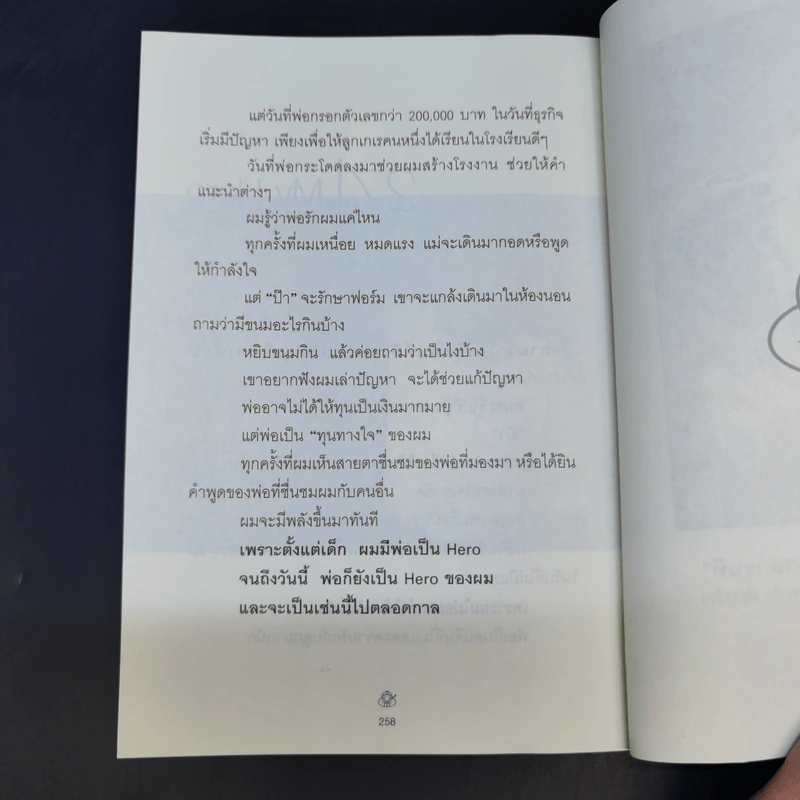 แต่วันที่พ่อกรอกตัวเลขกว่า 200,000 บาท ในวันที่ธุรกิจ
เริ่มมีปัญหา เพียงเพื่อให้ลูกเกเรคนหนึ่งได้เรียนในโรงเรียนดีๆ
วันที่พ่อกระโดดลงมาช่วยผมสร้างโรงงาน ช่วยให้คำ
แนะนำต่างๆ
ผมรู้ว่าพ่อรักผมแค่ไหน
ทุกครั้งที่ผมเหนื่อย หมดแรง แม่จะเดินมากอดหรือพูด
ให้กำลังใจ
แต่ “ป๊า” จะรักษาฟอร์ม เขาจะแกล้งเดินมาในห้องนอน
ถามว่ามีขนมอะไรกินบ้าง
หยิบขนมกิน แล้วค่อยถามว่าเป็นไงบ้าง
เขาอยากฟังผมเล่าปัญหา จะได้ช่วยแก้ปัญหา
พ่ออาจไม่ได้ให้ทุนเป็นเงินมากมาย
แต่พ่อเป็น “ทุนทางใจ” ของผม
ทุกครั้งที่ผมเห็นสายตาชื่นชมของพ่อที่มองมา หรือได้ยิน
คำพูดของพ่อที่ชื่นชมผมกับคนอื่น
ผมจะมีพลังขึ้นมาทันที
เพราะตั้งแต่เด็ก ผมมีพ่อเป็น Hero
จนถึงวันนี้ พ่อก็ยังเป็น Hero ของผม
และจะเป็นเช่นนี้ไปตลอดกาล
258